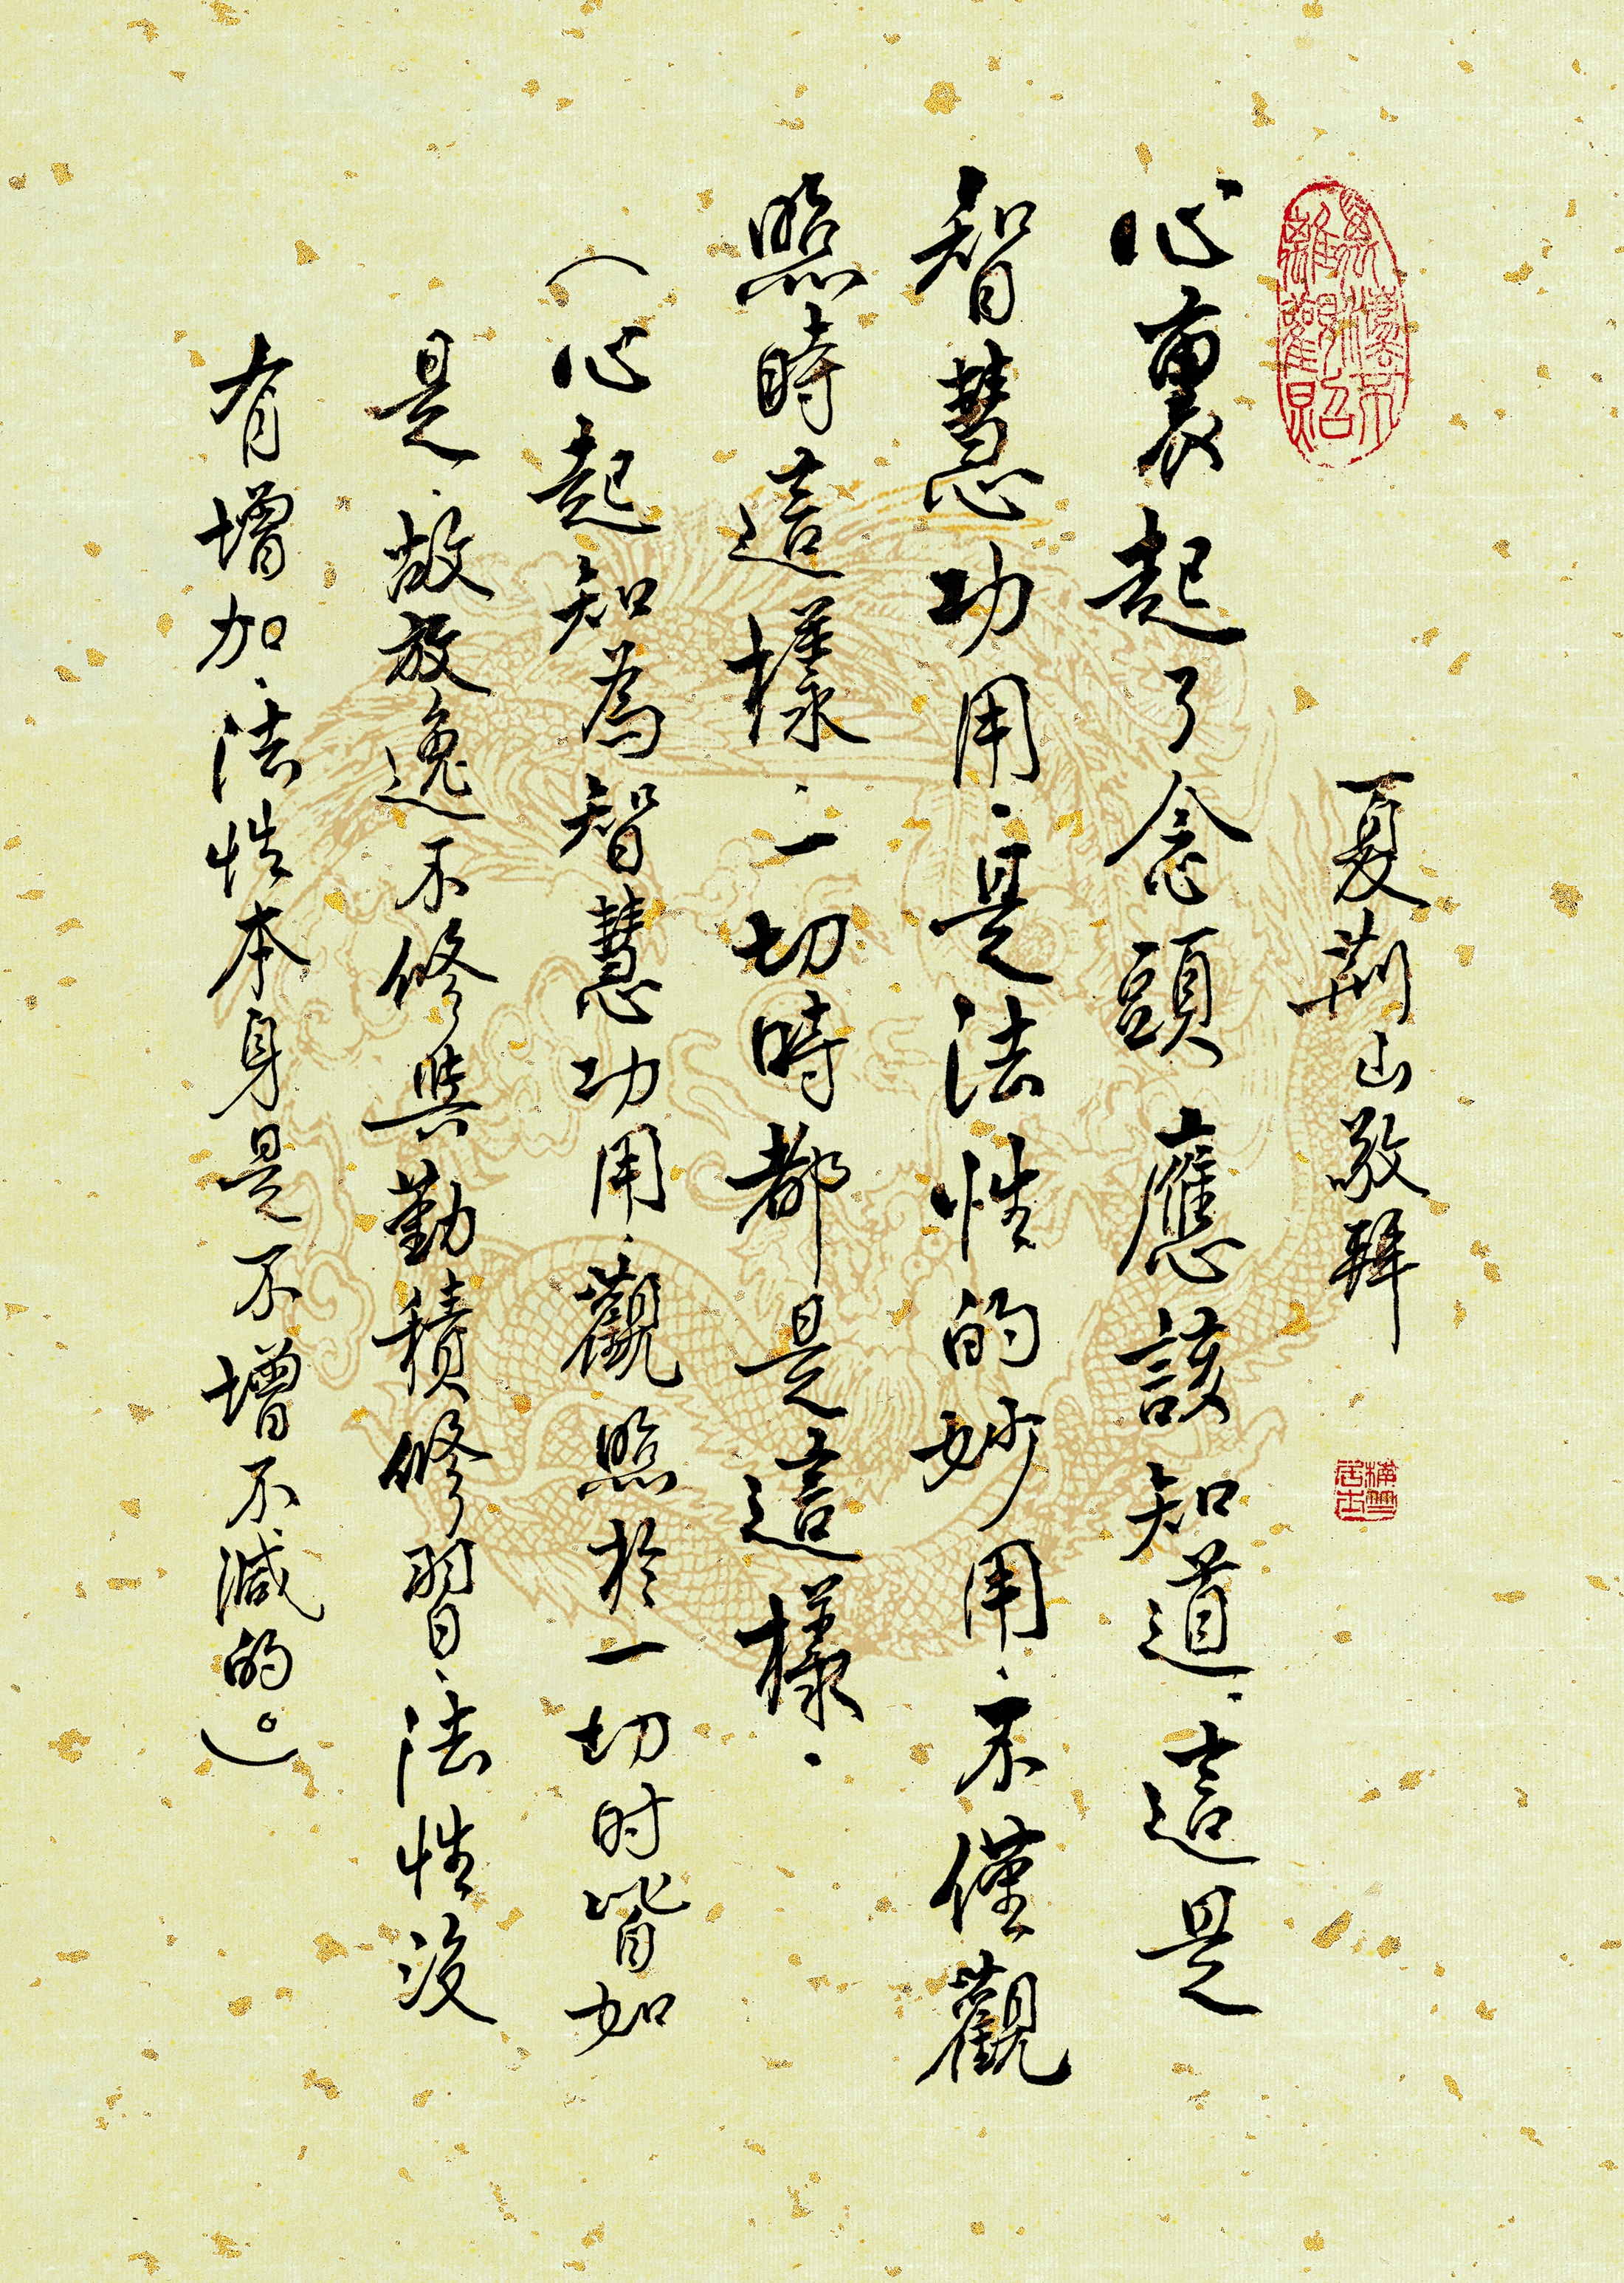 夏荊山敬拜
心裏起了念頭應該知道.這是
智慧功用.是法性的妙用.不僅觀
照時這樣.一切時都是這樣.
(心起知為智慧功用.觀照於一切时皆如
是.故放逸不修與勤積修習.法性沒
有增加.法性本身是不增不減的。)